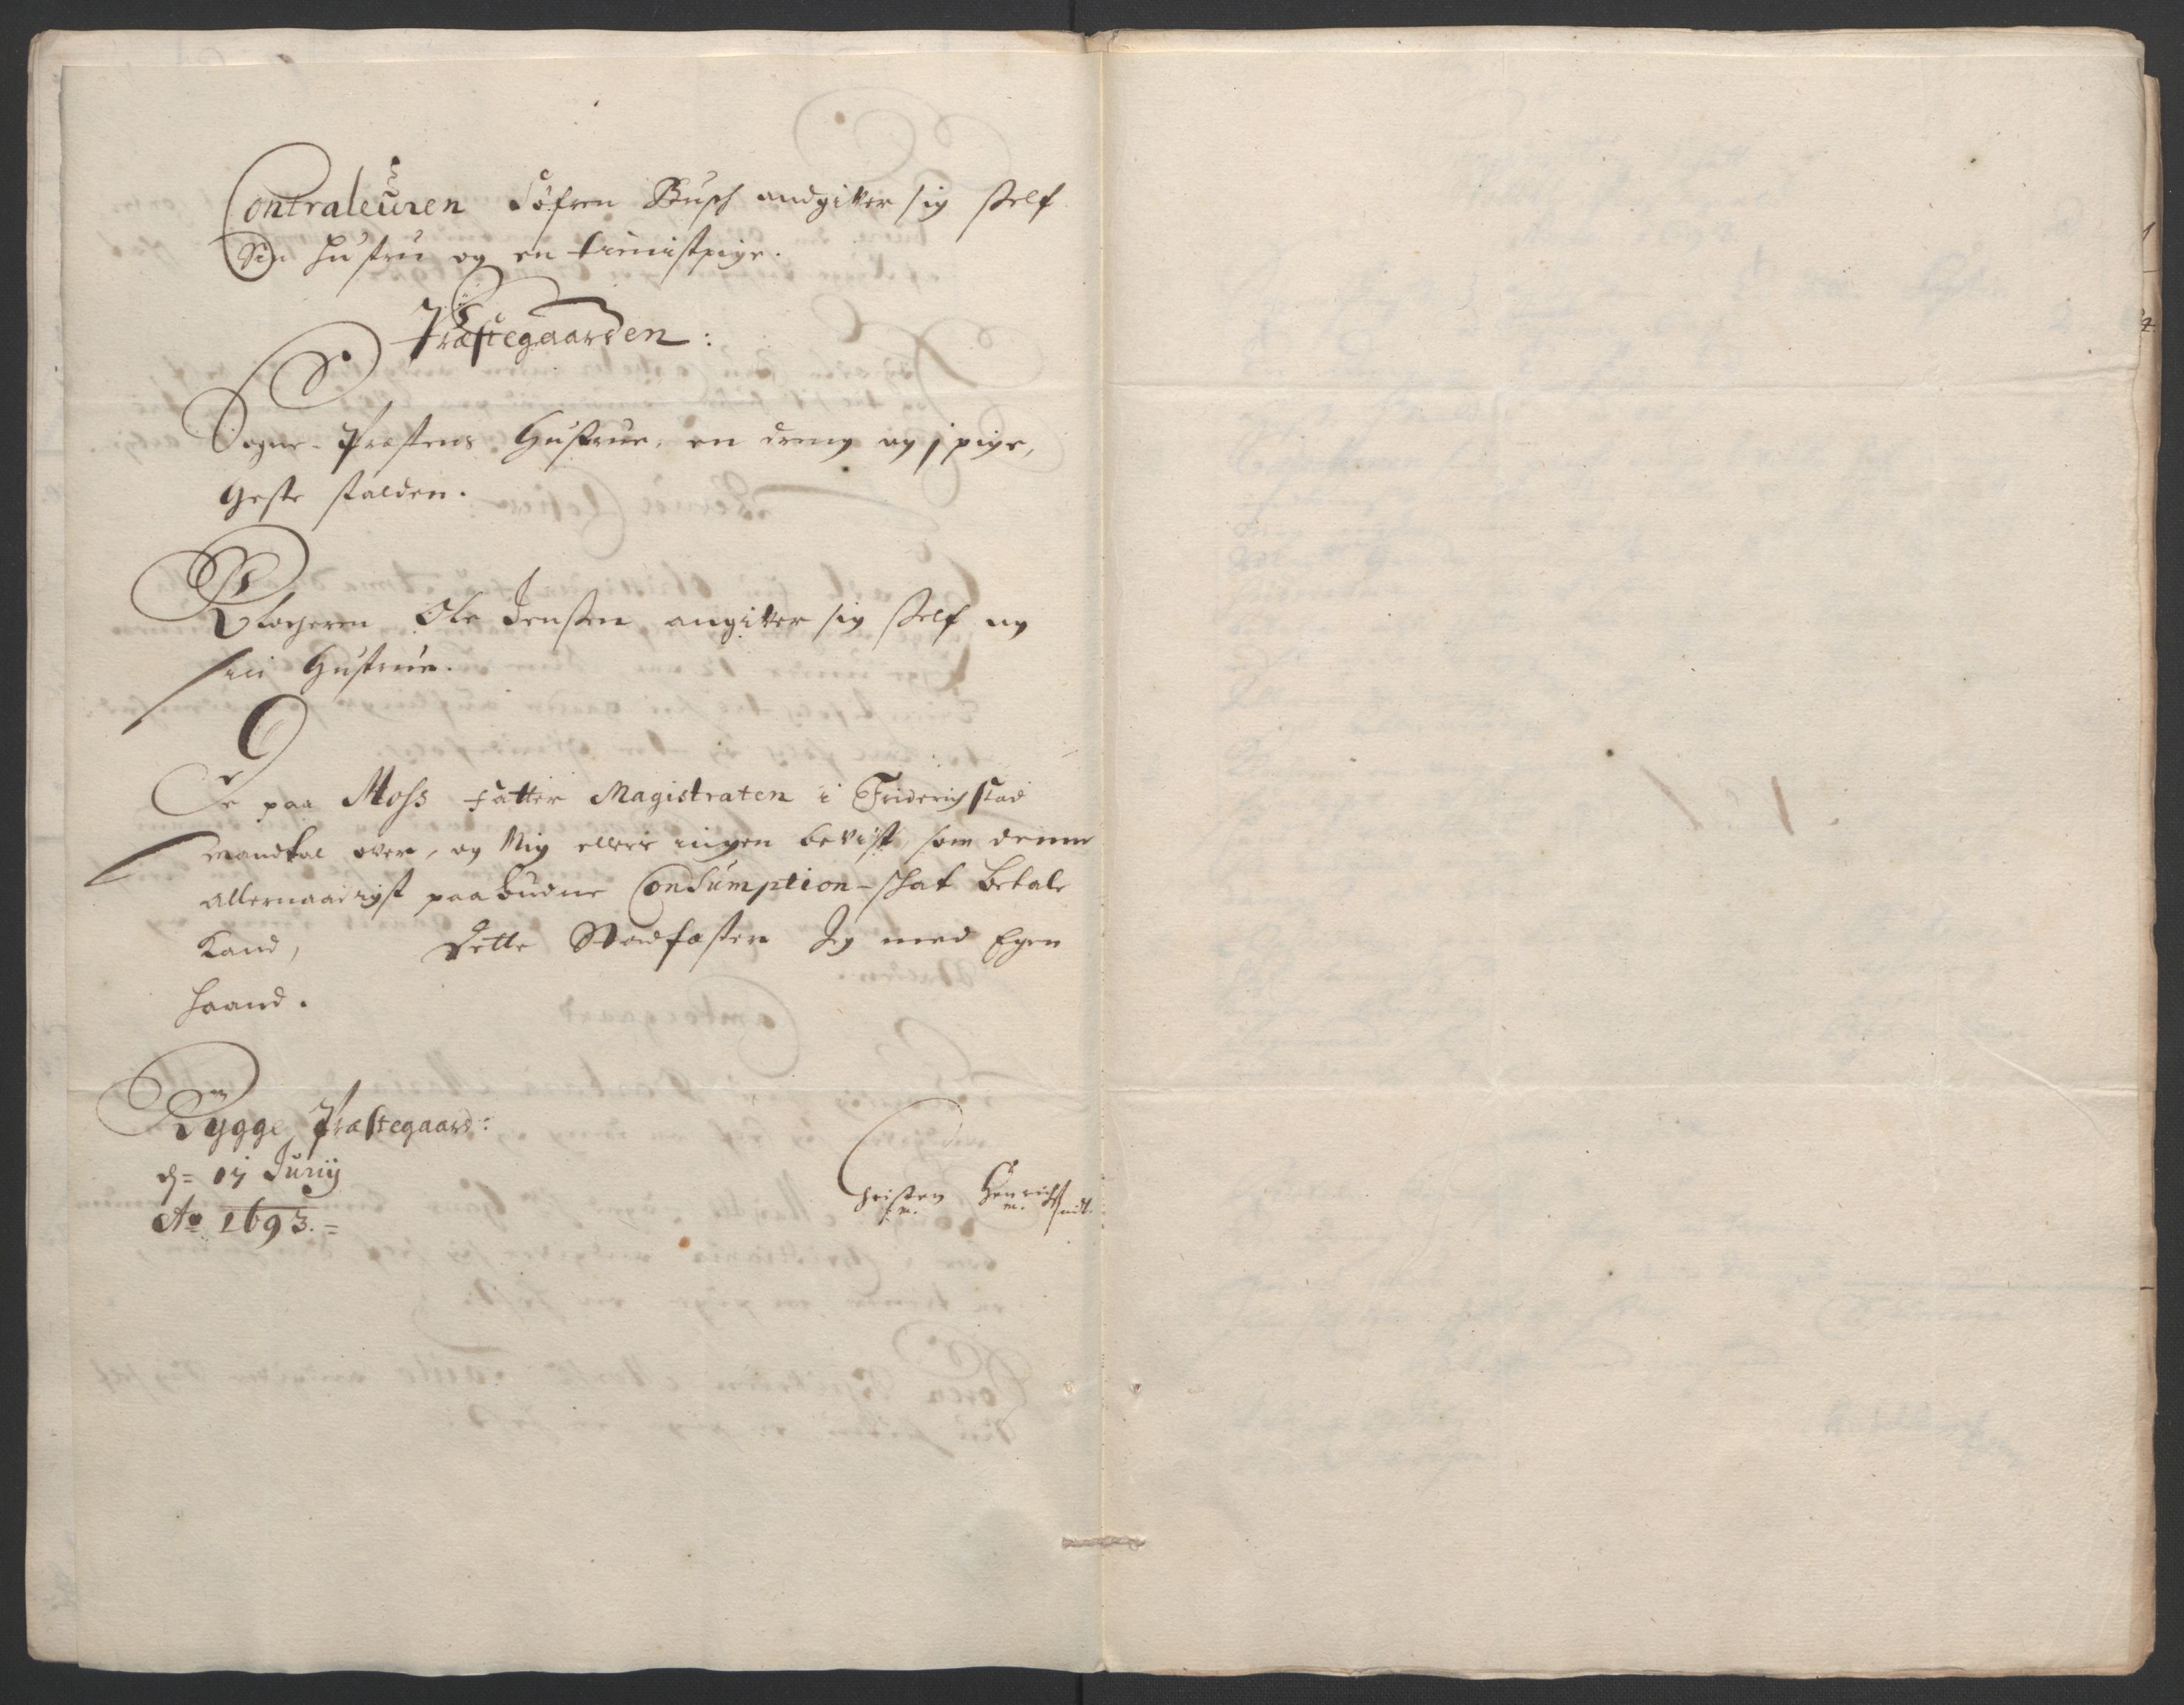 Contraleuren Søfren Busch andgiffver sig self
Sin hustru og en tienistpige.
Præstegaarden:
Sogne-Præstens Hustrue, en dreng og j pige,
Heste stalden.
Klocheren Ole Jensen angiffver sig self og
sin Hustrue.
De paa Moss fatter Magistraten i Friderichstad
mandtal over, og Mig ellers ingen bevist, som denne
allernaadigst paabudne Consumption-schat betale
Kand, Dette Stadfæster Jeg med Egen
haand.
Rygge Præstegaard:
d= 17 Junij
Ao 1693.=
Christen Henrich